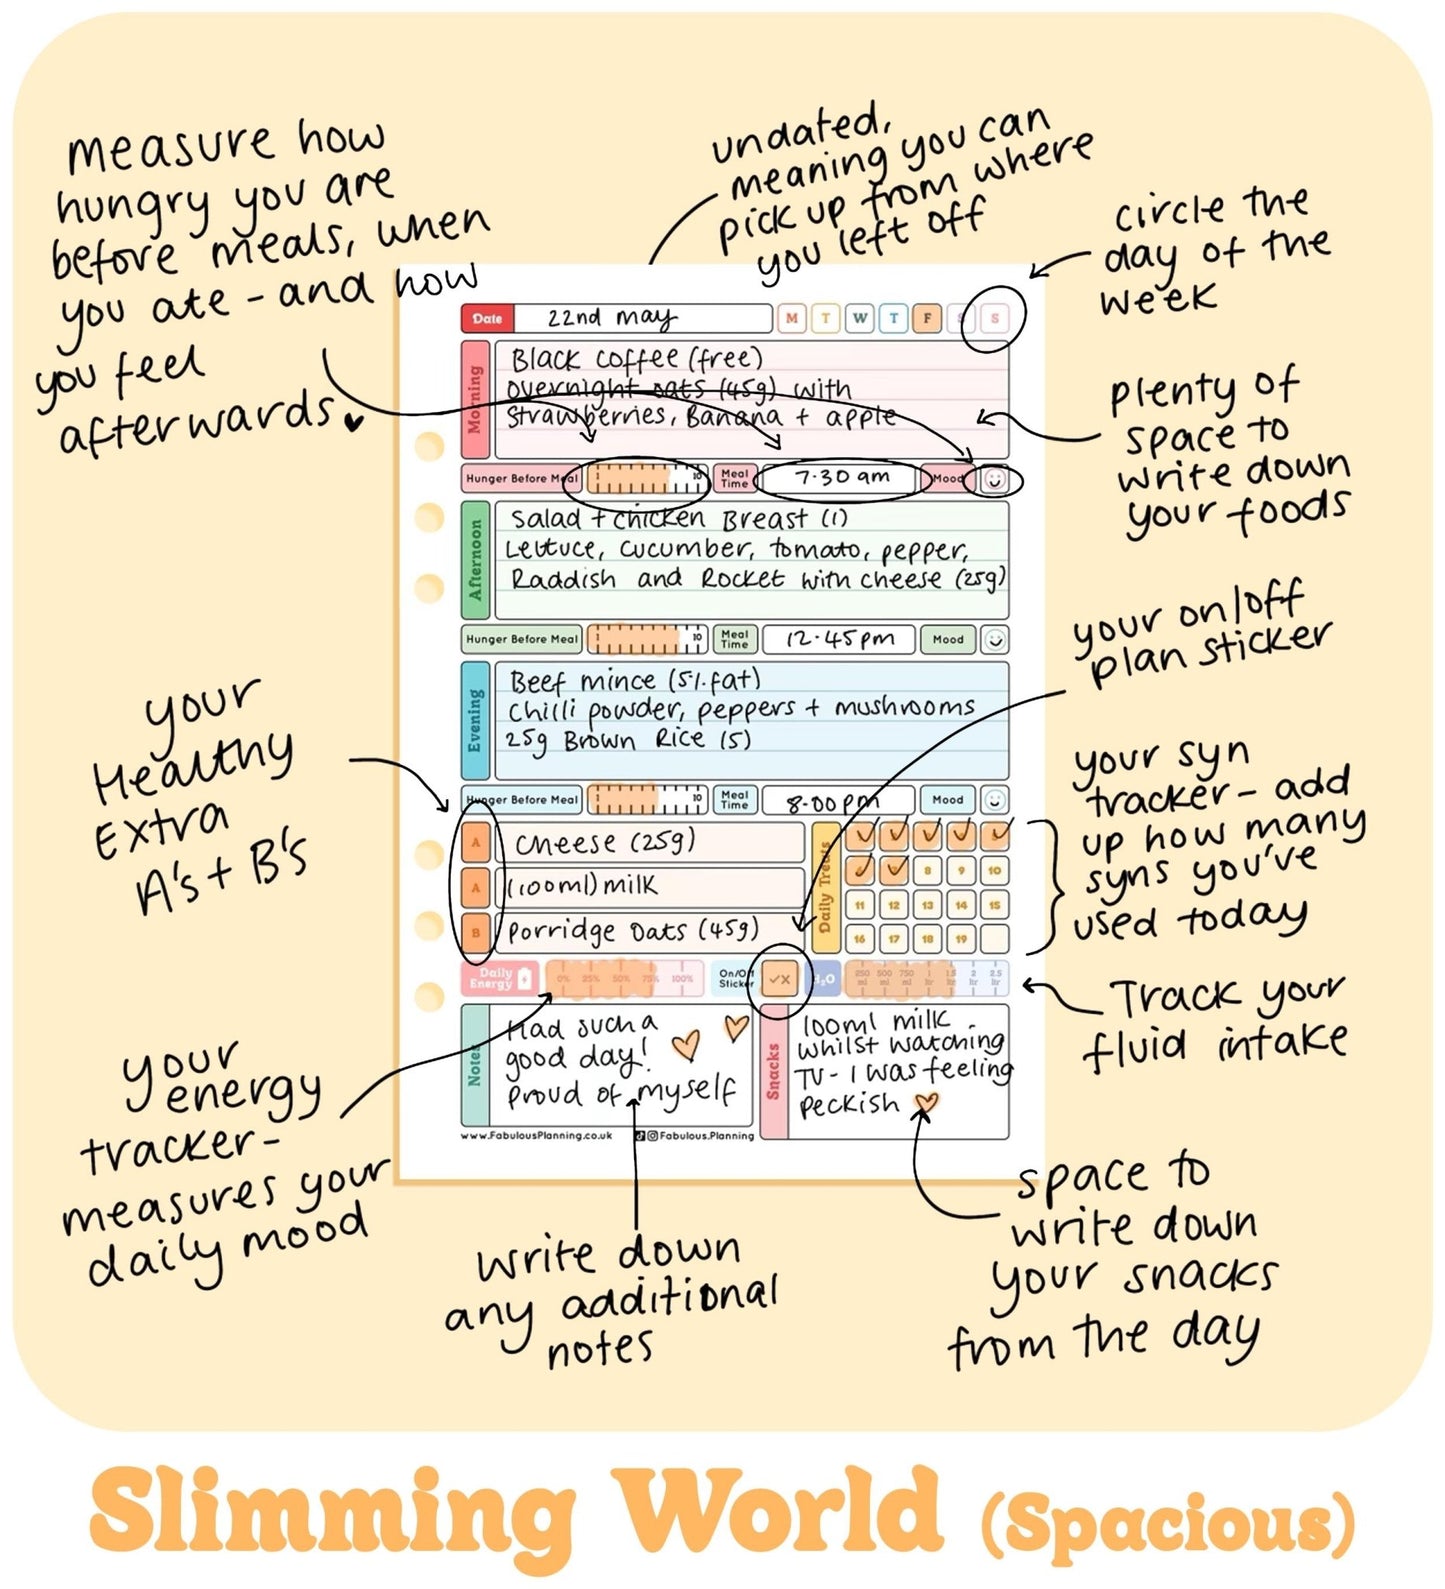 measure how
hungry you are
before meals, when
you ate - and how
you feel
afterwards.
undated,
meaning you can
pick up from where
you left off
circle the
day of the
week
Date 22nd may M T W T F S S
Morning
Black coffee (free)
overnight oats (45g) with
Strawberries, Banana + apple
plenty of
space to
write down
your foods
Hunger Before Meal 10 Meal Time 7.30 am Mood
Afternoon
Salad + chicken Breast (1)
Lettuce, cucumber, tomato, pepper,
Raddish and Rocket with cheese (25g)
Hunger Before Meal 10 Meal Time 12.45pm Mood
your on/off
plan sticker
Evening
Beef mince (5% fat)
Chilli powder, peppers + mushrooms
25g Brown Rice (5)
Hunger Before Meal 10 Meal Time 8.00 pm Mood
your
Healthy
Extra
A's + B's
A cheese (25g)
A (100ml) milk
B Porridge Oats (45g)
Daily Treats
8 9 10
11 12 13 14 15
16 17 18 19
your syn
tracker - add
up how many
syns you've
used today
Daily Energy 0% 25% 50% 75% 100%
On/Off Sticker
H2O 250 ml 500 ml 750 ml 1 ltr 1.5 ltr 2 ltr 2.5 ltr
Track your
fluid intake
Notes
Had such a
good day!
Proud of myself
Snacks
100ml milk
whilst watching
TV - I was feeling
peckish
www.FabulousPlanning.co.uk Fabulous.Planning
your
energy
tracker -
measures your
daily mood
write down
any additional
notes
space to
write down
your snacks
from the day
Slimming World (Spacious)